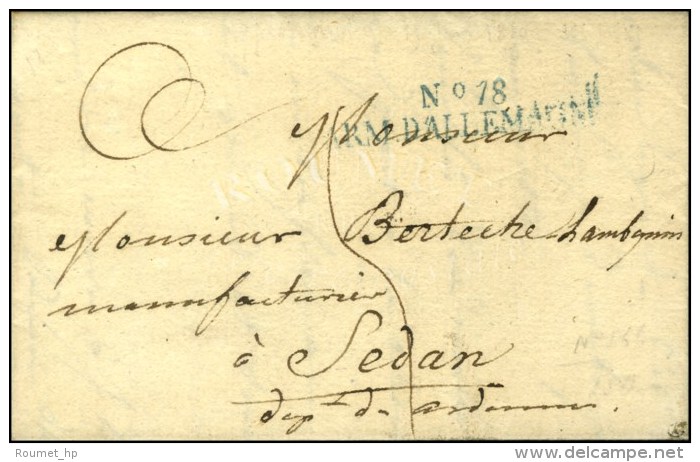 No 18
ARM. D'ALLEMAGNE
Monsieur
Monsieur Berteche Lambquin
manufacturier
à Sedan
dépt. des ardennes.
Roumet_hp
© www.delcampe.net